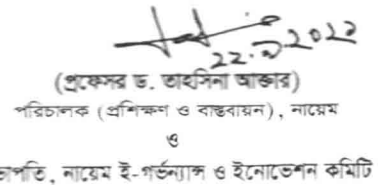 22.৯.2022
(প্রফেসর ড. তাহমিনা আক্তার)
পরিচালক (প্রশিক্ষণ ও বাস্তবায়ন), নায়েম
ও
নায়েম ই-গর্ভন্যান্স ও ইনোভেশন কমিটি